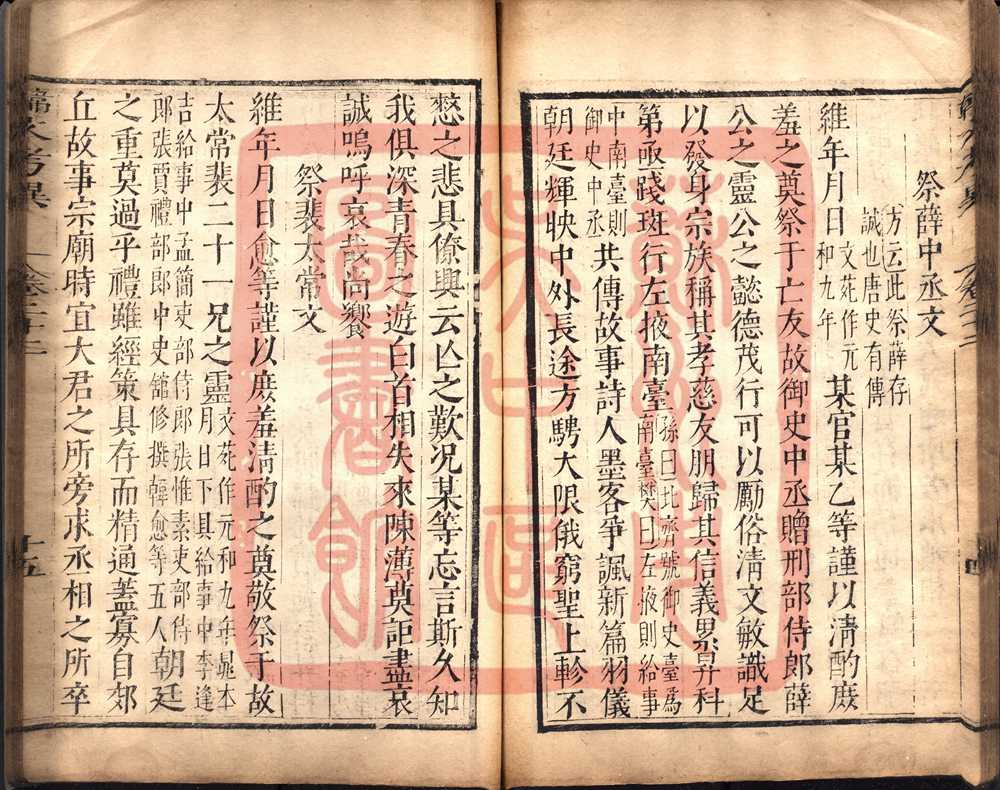 祭薛中丞文
方云此祭薛存
誠也唐史有傳
維年月日文苑作元和九年某官某乙等謹以清酌庶
羞之奠祭于亡友故御史中丞贈刑部侍郎薛
公之靈公之懿德茂行可以勵俗清文敏識足
以發身宗族稱其孝慈友朋歸其信義累昇科
第亟踐班行左掖南臺孫曰北齊號御史臺爲南臺樊曰左掖則給事
中南臺則御史中丞共傳故事詩人墨客爭諷新篇羽儀
朝廷輝映中外長途方騁大限俄窮聖上軫不
憖之悲具僚興云亾之歎况某等忘言斯久知
我俱深青春之遊白首相失來陳薄奠詎盡哀
誠嗚呼哀哉尚饗
祭裴太常文
維年月日愈等謹以庶羞清酌之奠敬祭于故
太常裴二十一兄之靈文苑作元和九年晁本月日下具給事中李逢
吉給事中孟簡吏部侍郎張惟素吏部侍
郎張賈禮部郎中史舘修撰韓愈等五人朝廷
之重莫過乎禮雖經策具存而精通蓋寡自郊
丘故事宗廟時宜大君之所旁求丞相之所卒
十五